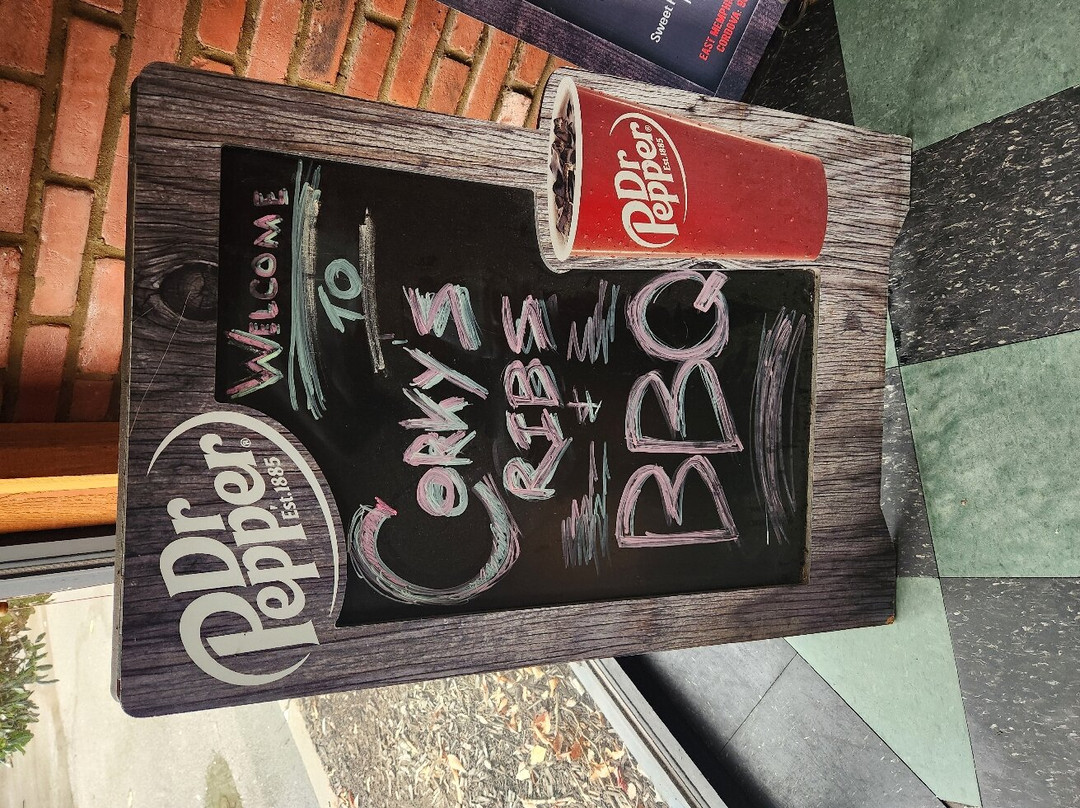 Dr
Pepper®
Est.1885
WELCOME
TO
CORKY'S
RIBS
+
BBQ
Dr
Pepper®
Est.1885
Sweet
EAST MEMPHIS
CORDOVA: